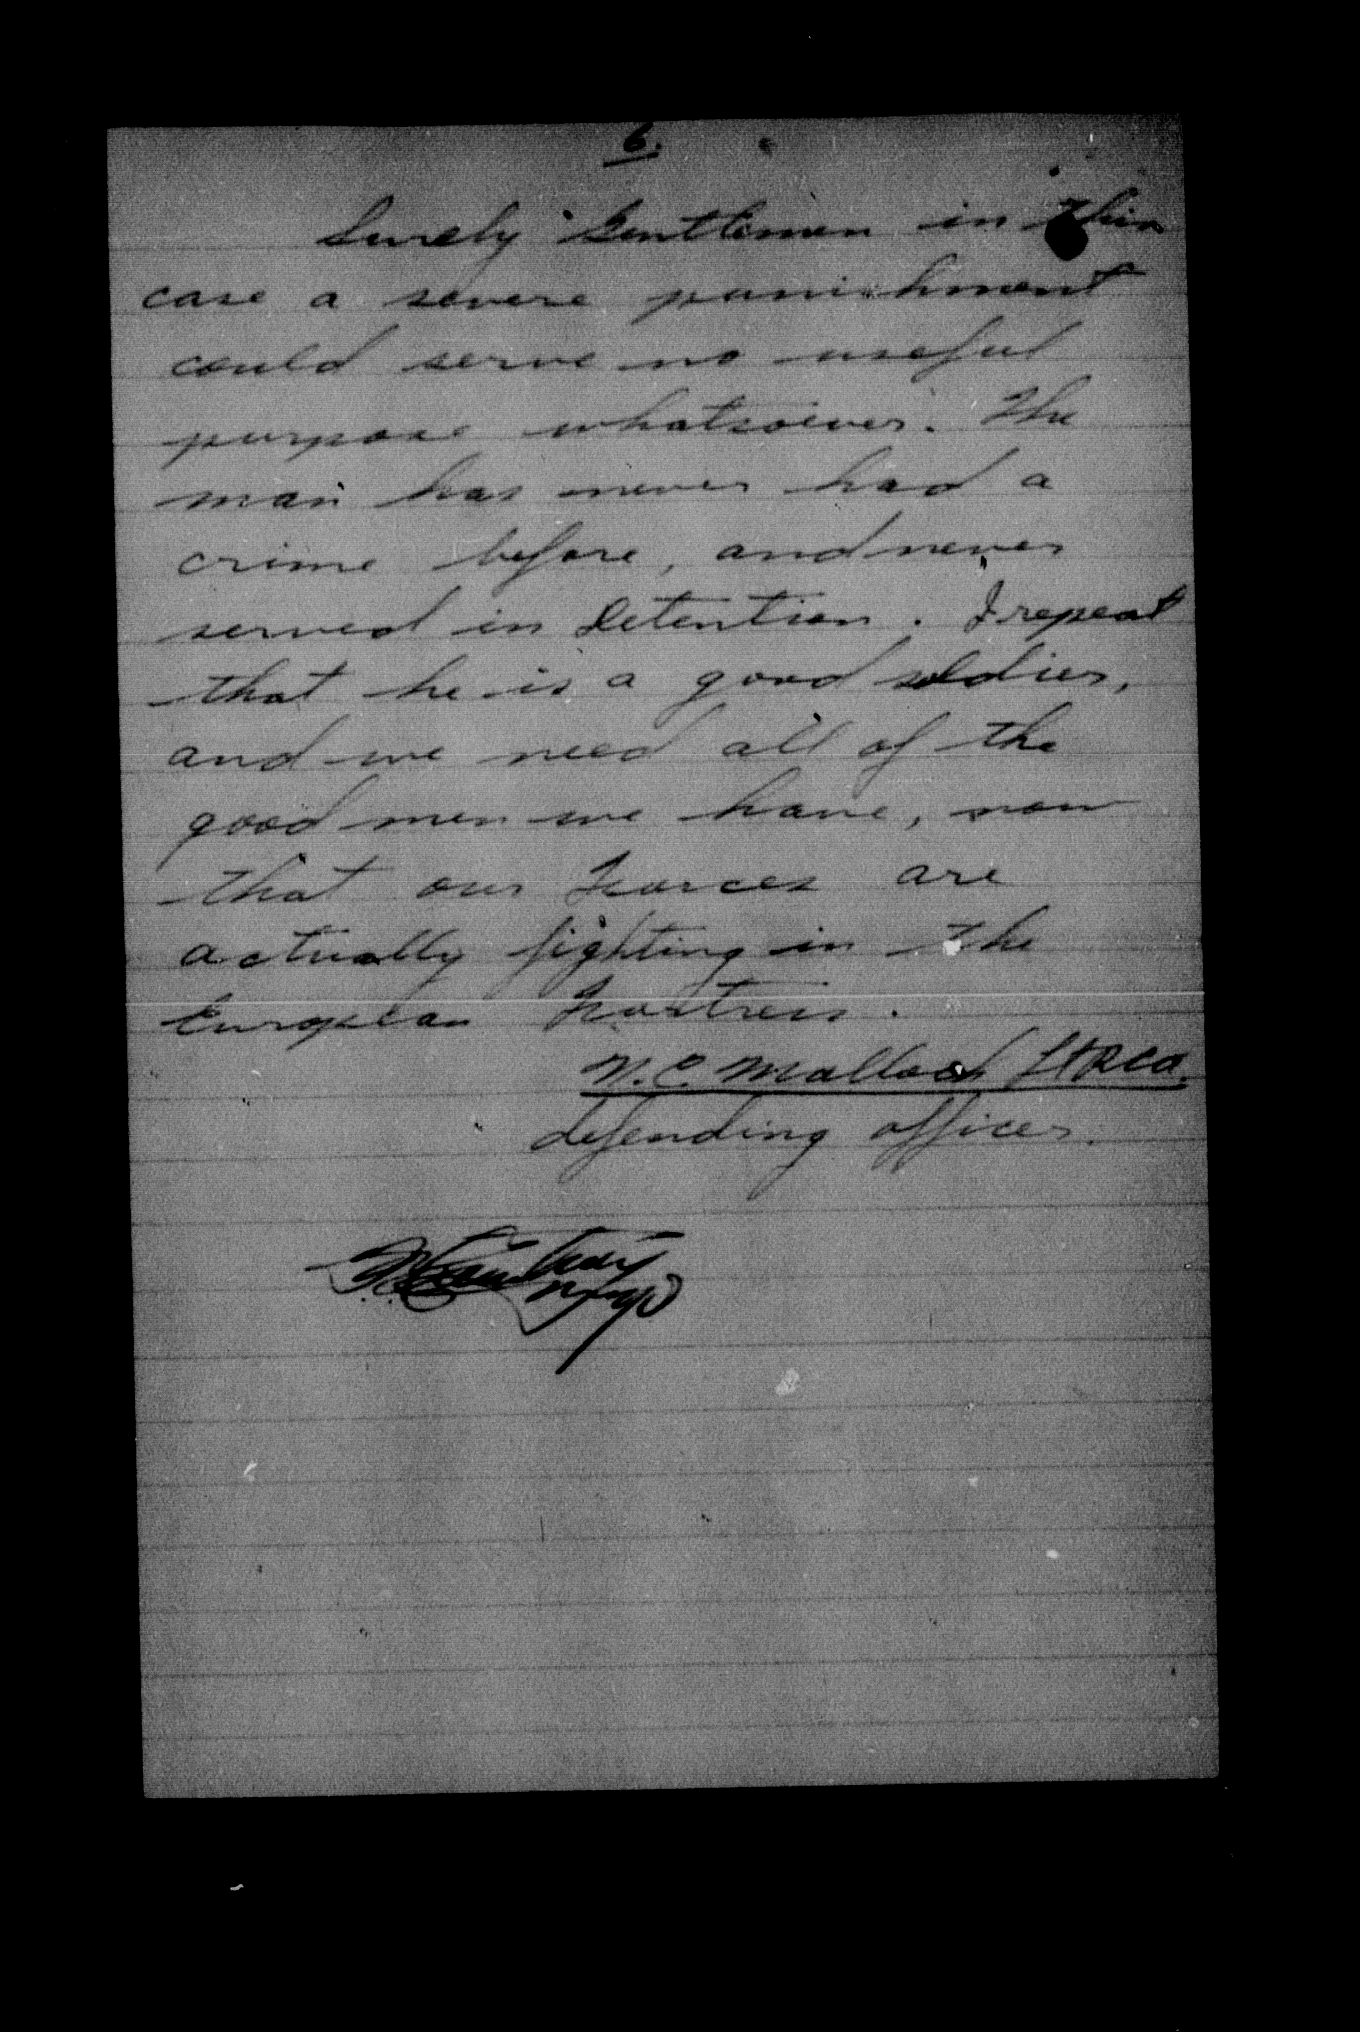 6.
Surely Gentlemen in this
case a severe punishment
could serve no useful
purpose whatsoever. The
man has never had a
crime before, and never
served in Detention. I repeat
that he is a good soldier,
and we need all of the
good men we have, now
that our Forces are
actually fighting in the
European Fortress.
N.C. Malloch Lt RCA.
defending officer.